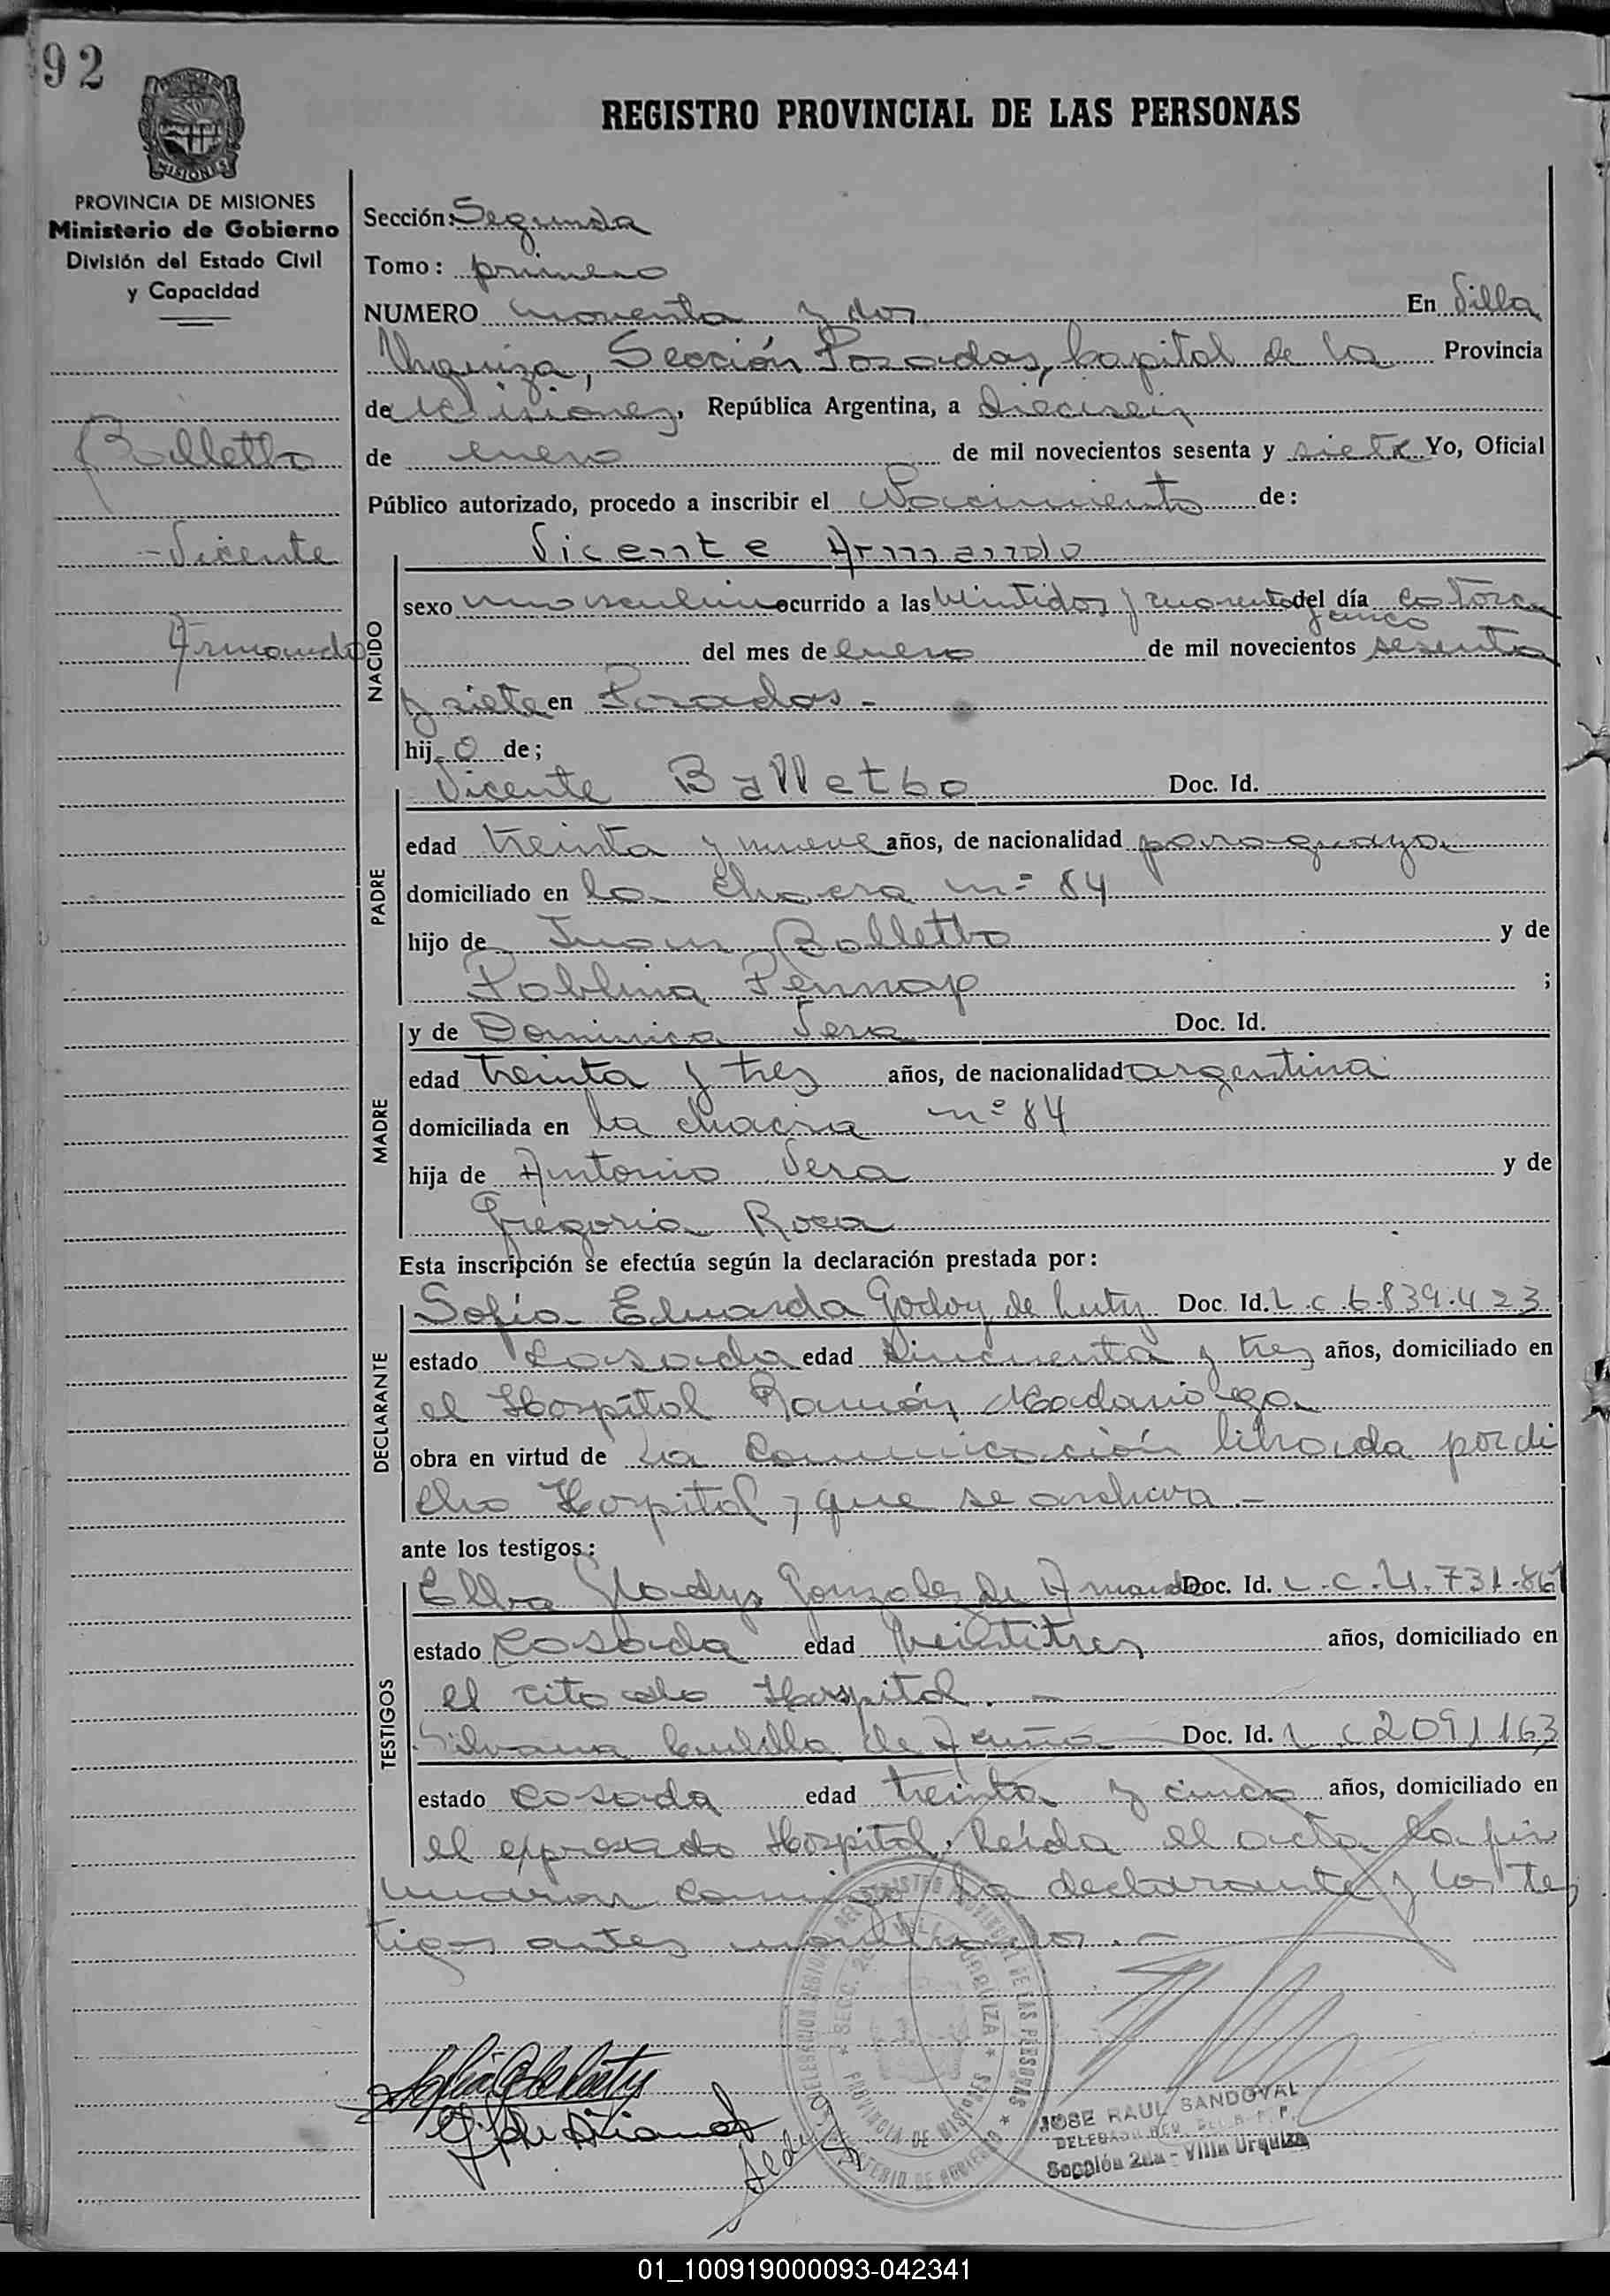 92
REGISTRO PROVINCIAL DE LAS PERSONAS
MISIONES
PROVINCIA DE MISIONES
Ministerio de Gobierno
División del Estado Civil
y Capacidad
Balletbo
-Vicente
Armando
Sección: Segunda
Tomo: primero
NUMERO noventa y dos En Villa
Urquiza, Sección Posadas, Capital de la Provincia
de Misiones, República Argentina, a dieciseis
de enero de mil novecientos sesenta y siete Yo, Oficial
Público autorizado, procedo a inscribir el Nacimiento de:
Vicente Armando
NACIDO
sexo masculino ocurrido a las veintidos y cuarenta del día catorce
y cinco
del mes de enero de mil novecientos sesenta
y siete en Posadas -
hijo de;
PADRE
Vicente Balletbo Doc. Id.
edad treinta y nueve años, de nacionalidad paraguaya
domiciliado en la chacra nº 84
hijo de Juan Balletbo y de
Pablina Pennap ;
MADRE
y de Dominica Vera Doc. Id.
edad treinta y tres años, de nacionalidad argentina
domiciliada en la chacra nº 84
hija de Antonio Vera y de
Gregoria Roca
Esta inscripción se efectúa según la declaración prestada por:
DECLARANTE
Sofía Eduarda Godoy de Doc. Id. L.C. 6.839.423
estado casada edad cincuenta y tres años, domiciliado en
el Hospital Ramón Madariaga
obra en virtud de la comunicación librada por di
cho Hospital y que se archiva -
ante los testigos:
TESTIGOS
Elba Gladys Gonzalez de Doc. Id. L.C. 4.731.86
estado casada edad veintitres años, domiciliado en
el citado Hospital. -
Silvana de Doc. Id. L C 2091163
estado casada edad treinta y cinco años, domiciliado en
el expresado Hospital. Leída el acta la fir
maron conmigo la declarante y los tes
tigos antes nombrados. -
SECC. 2
PROVINCIA DE MISIONES
MINISTERIO DE GOBIERNO
JOSE RAUL SANDOVAL
Sección 2da - Villa Urquiza
01_100919000093-042341